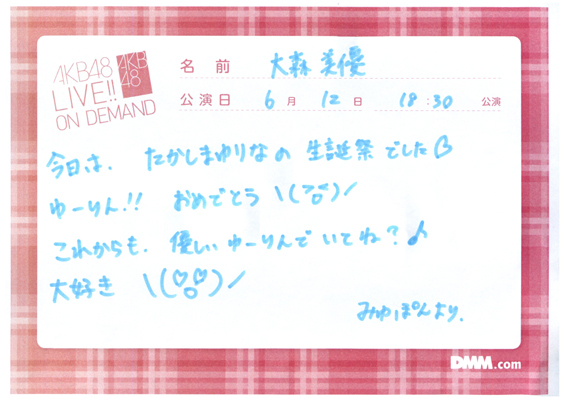 AKB48
LIVE!!
ON DEMAND
AKB
48
名 前 大森 美優
公演日 6 月 12 日 18:30 公演
今日は、たかしまゆりなの 生誕祭でした
ゆーりん!! おめでとう \(^o^)/
これからも、優しいゆーりんでいてね?♪
大好き \(♡o♡)/
みゆぽんより。
DMM.com